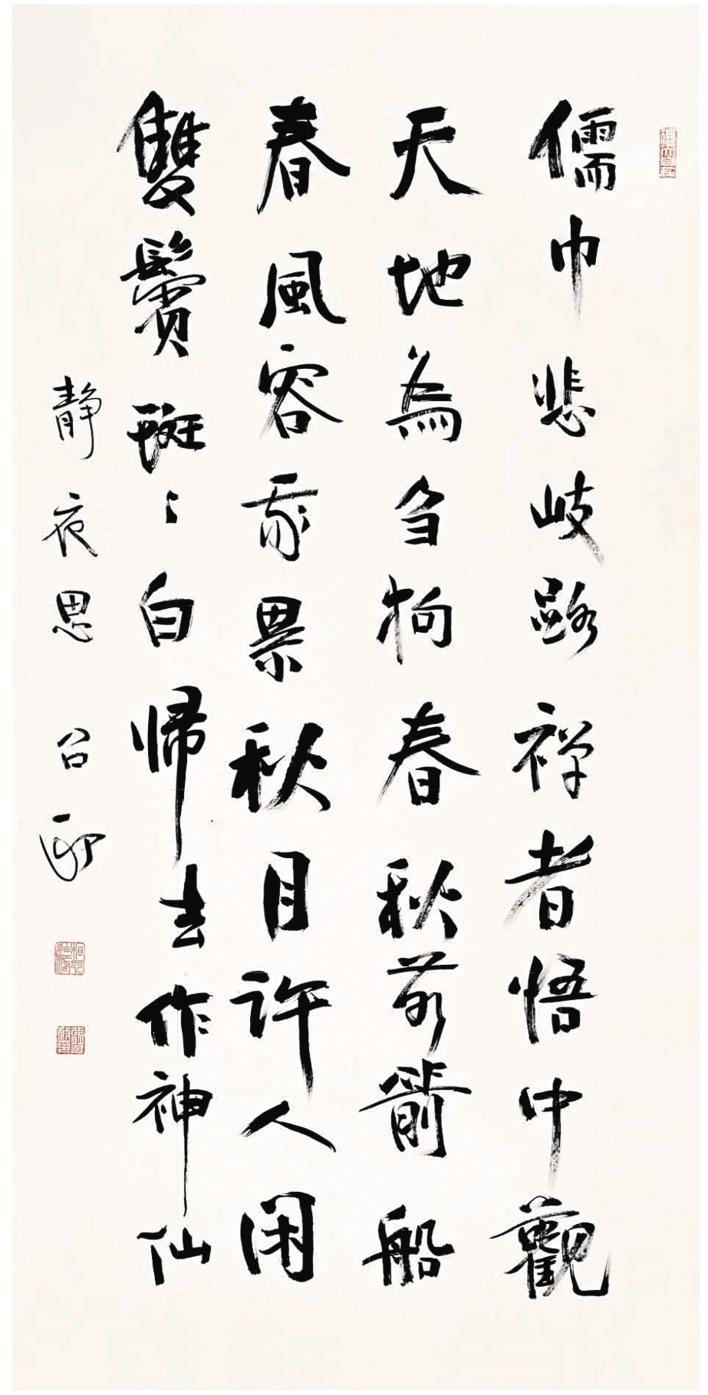 儒巾悲岐路禅者悟中觀
天地為刍狗春秋若箭船
春風容我累秋月許人闲
雙鬢斑〻白帰去作神仙
静夜思 召政